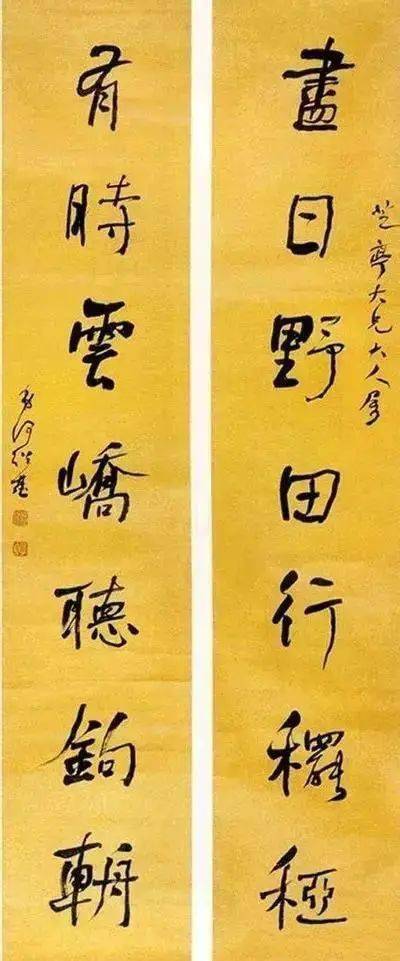 盡日野田行穲稏
芝亭大兄大人屬
有時雲嶠聽鉤輈
弟何紹基